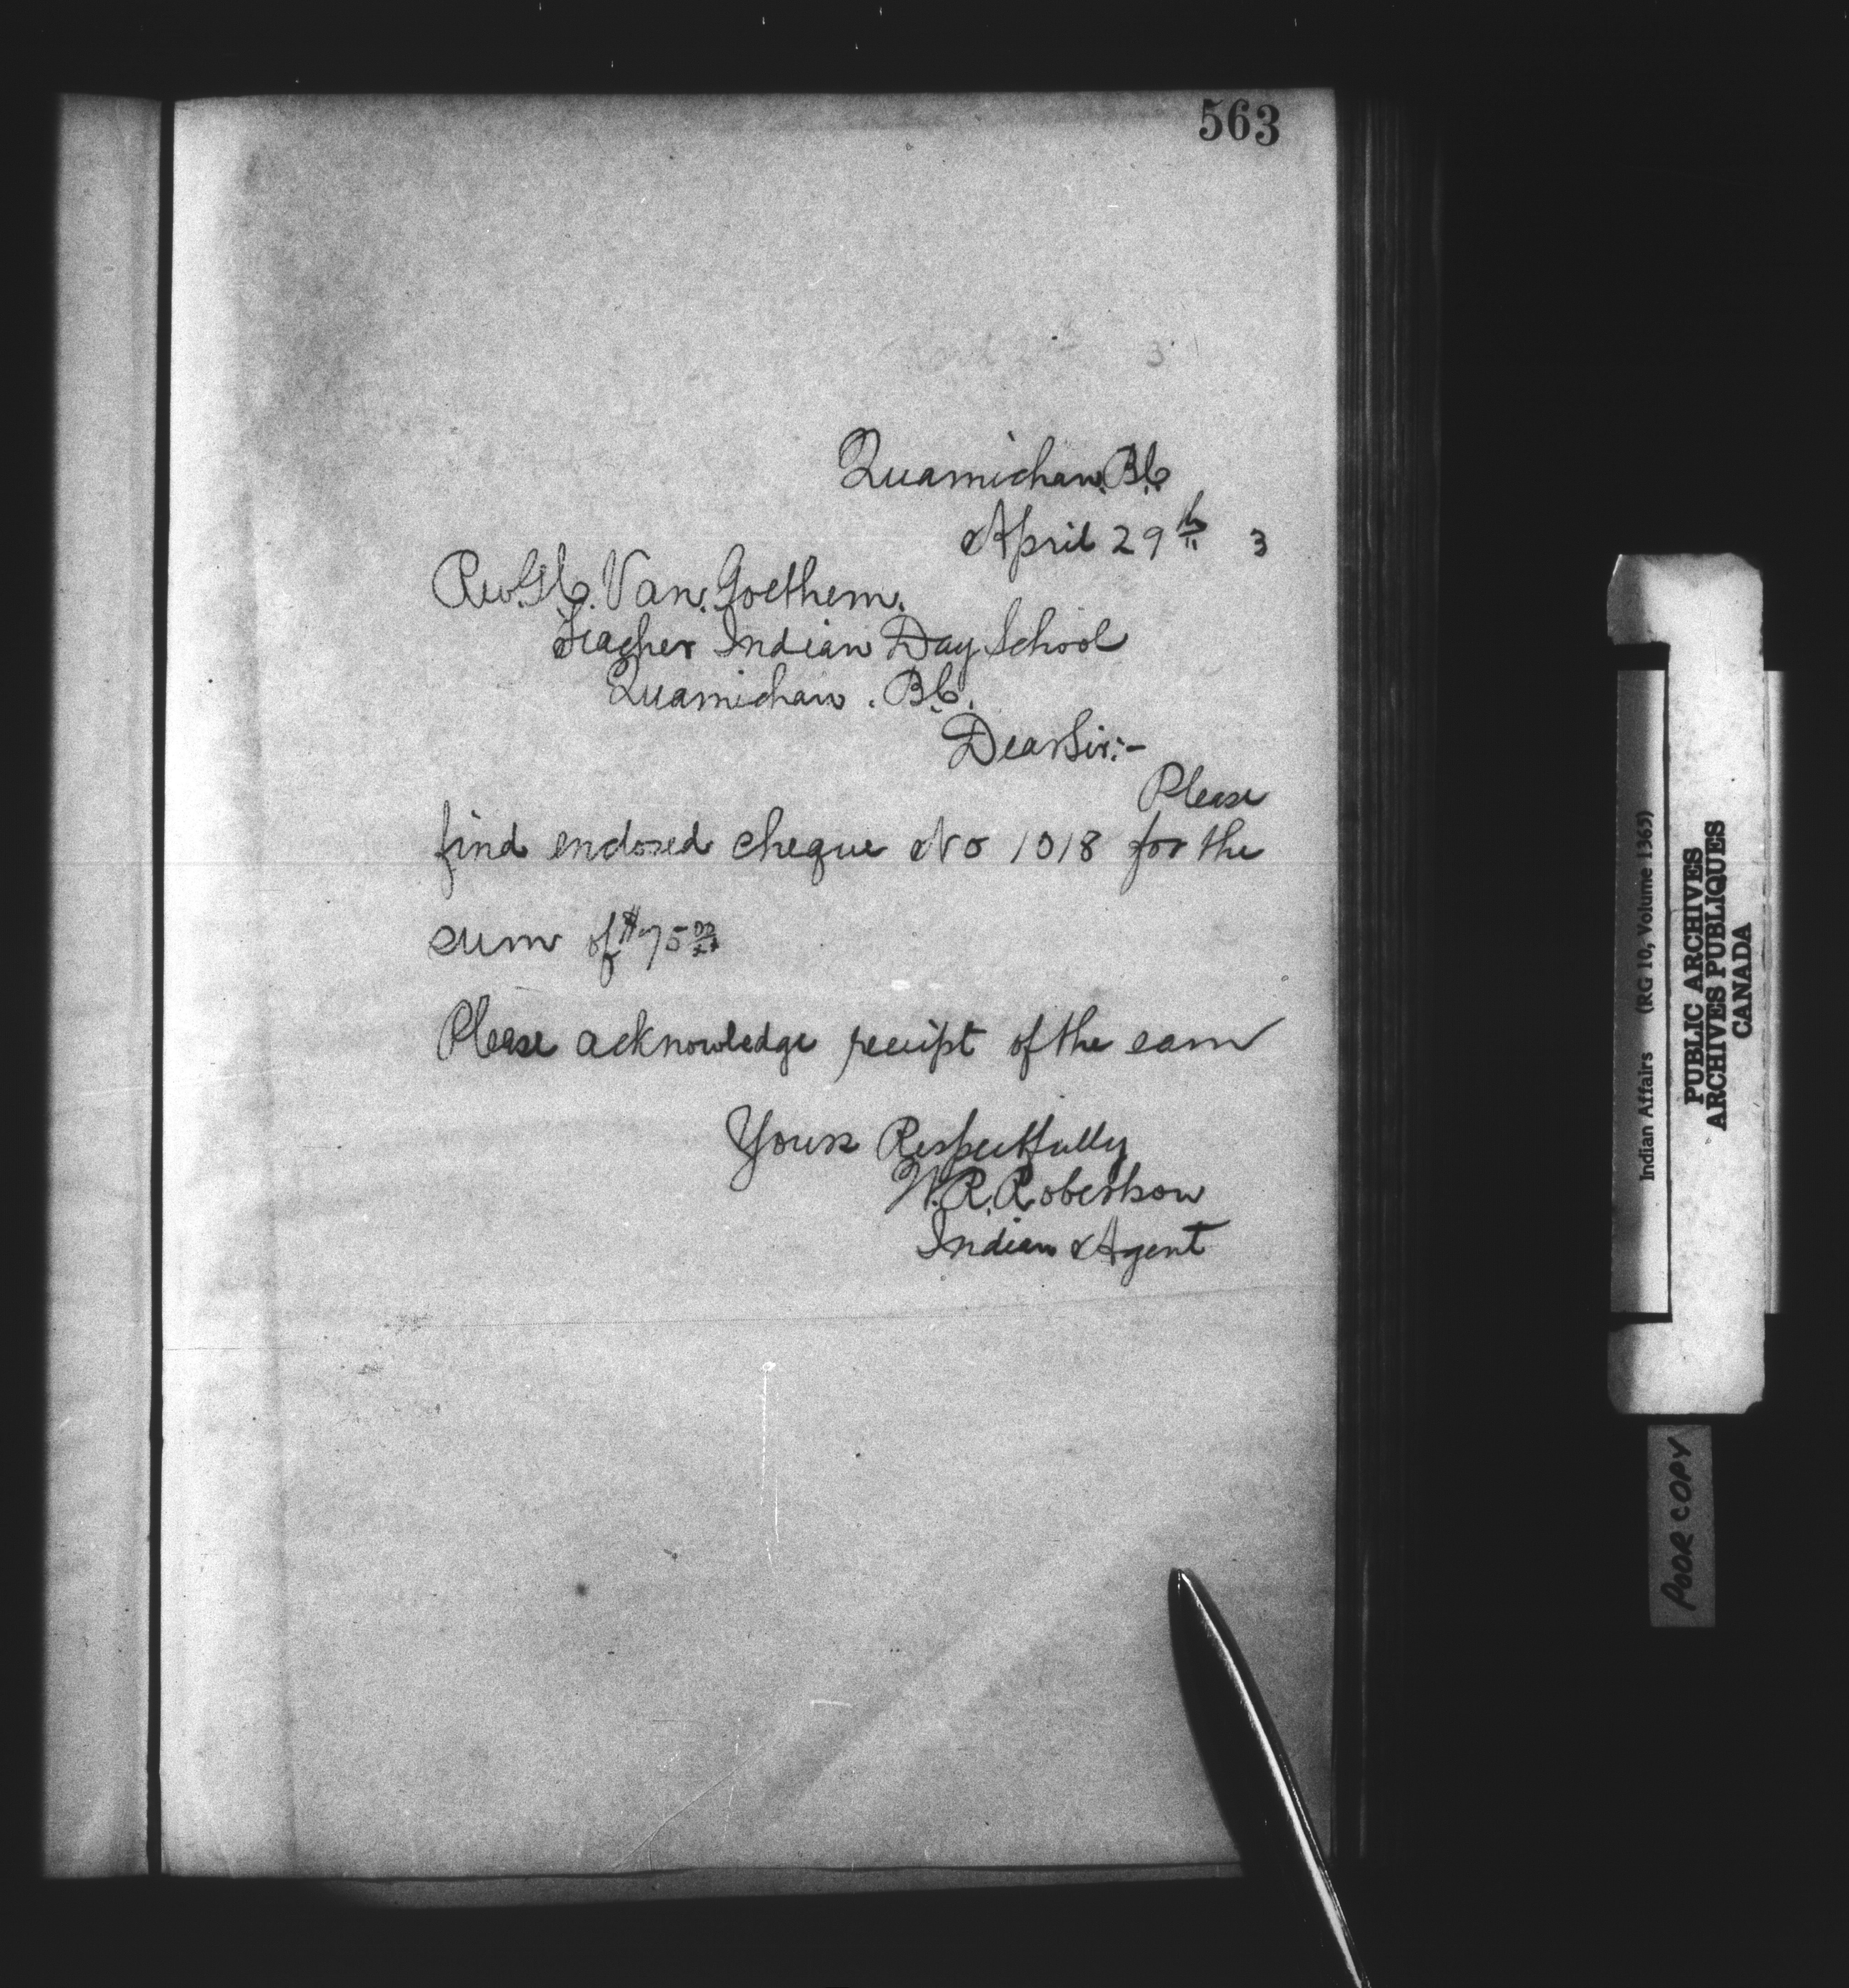 563
Quamichan. B.C.
April 29th 3
Rev. G. C. Van. Goethem.
Teacher Indian Day School
Quamichan. B.C.
Dear Sir:-
Please
find enclosed cheque No 1018 for the
sum of $75 00/xx
Please acknowledge receipt of the sam
Yours Respectfully
W. R. Robertson
Indian Agent
Indian Affairs (RG 10, Volume 1363)
PUBLIC ARCHIVES
ARCHIVES PUBLIQUES
CANADA
POOR COPY